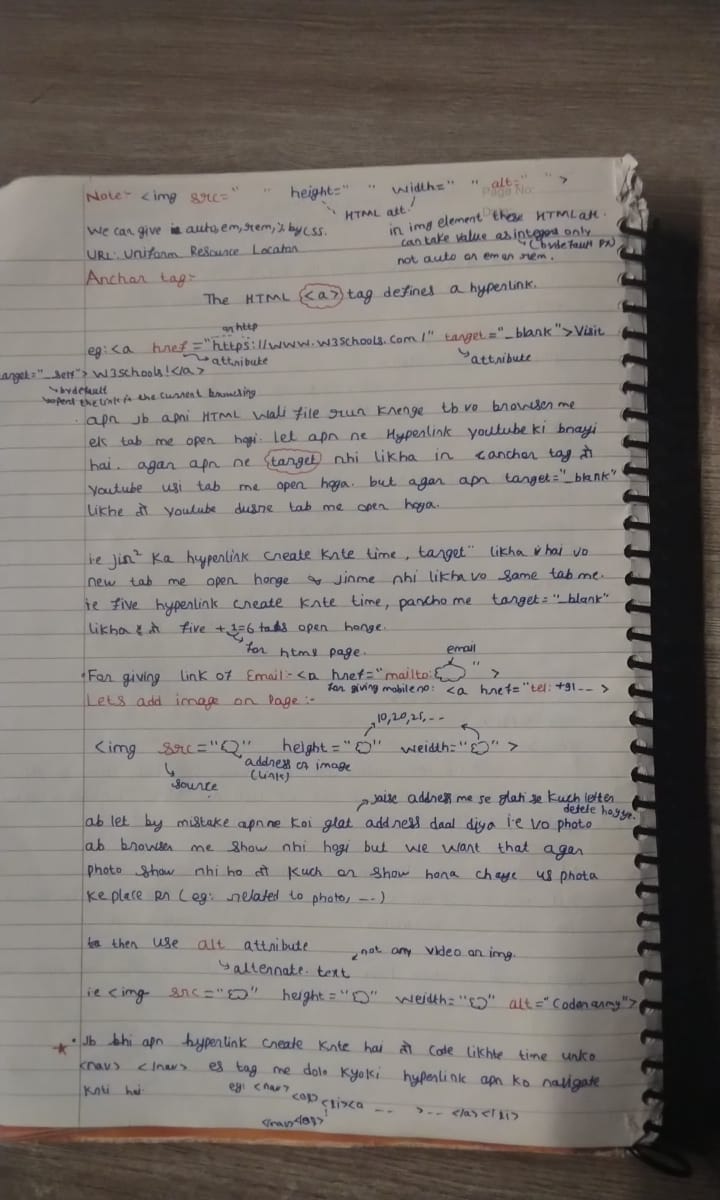 Note:- <img src=" " height=" " width=" " alt=" " >
Page No:
HTML att.
in img element these HTML att.
We can give in auto, em, rem, % by CSS.
can take value as integer only
(bydefault px)
URL: Uniform Resource Locator
not auto or em or rem.
Anchor tag:-
The HTML <a> tag defines a hyperlink.
or http
eg: <a href="https://www.w3schools.com/" target="_blank">Visit
attribute
attribute
target="_self"> W3Schools!</a>
bydefault
opens the link in the current browsing
apn jb apni HTML wali file run krenge tb vo browser me
ek tab me open hogi. Let apn ne Hyperlink youtube ki bnayi
hai. agar apn ne target nhi likha in <anchor tag तो
youtube usi tab me open hoga. but agar apn target="_blank"
likhe तो youtube dusre tab me open hoga.
ie jin² ka hyperlink create krte time, target" likha hai vo
new tab me open honge & jinme nhi likha vo same tab me.
ie five hyperlink create krte time, pancho me target="_blank"
likha है तो five + 1=6 tabs open honge.
for html page.
email
• For giving link of Email:- <a href="mailto: " >
for giving mobile no: <a href="tel: +91-- >
Lets add image on Page:-
10,20,25,--
<img src=" " height=" " weidth=" " >
address of image
(link)
source
jaise address me se glati se kuch letter
delete hogye.
ab let by mistake apn ne koi glat address daal diya i.e vo photo
ab browser me show nhi hogi but we want that agar
photo show nhi ho तो kuch or show hona chaye us photo
ke place pr (eg: related to photo, --)
then use alt attribute
not any video or img.
alternate text
ie <img src=" " height=" " weidth=" " alt="Coder army">
★ • Jb bhi apn hyperlink create krte hai तो code likhte time unko
<nav> </nav> es tag me dalo kyoki hyperlink apn ko navigate
krti hai
eg: <nav>
<ol> <li><a -- >-- </a></li>